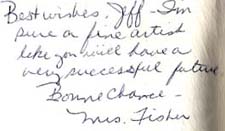 Best wishes, Jeff - I'm
sure a fine artist
like you will have a
very successful future.
Bonne Chance -
Mrs. Fisher